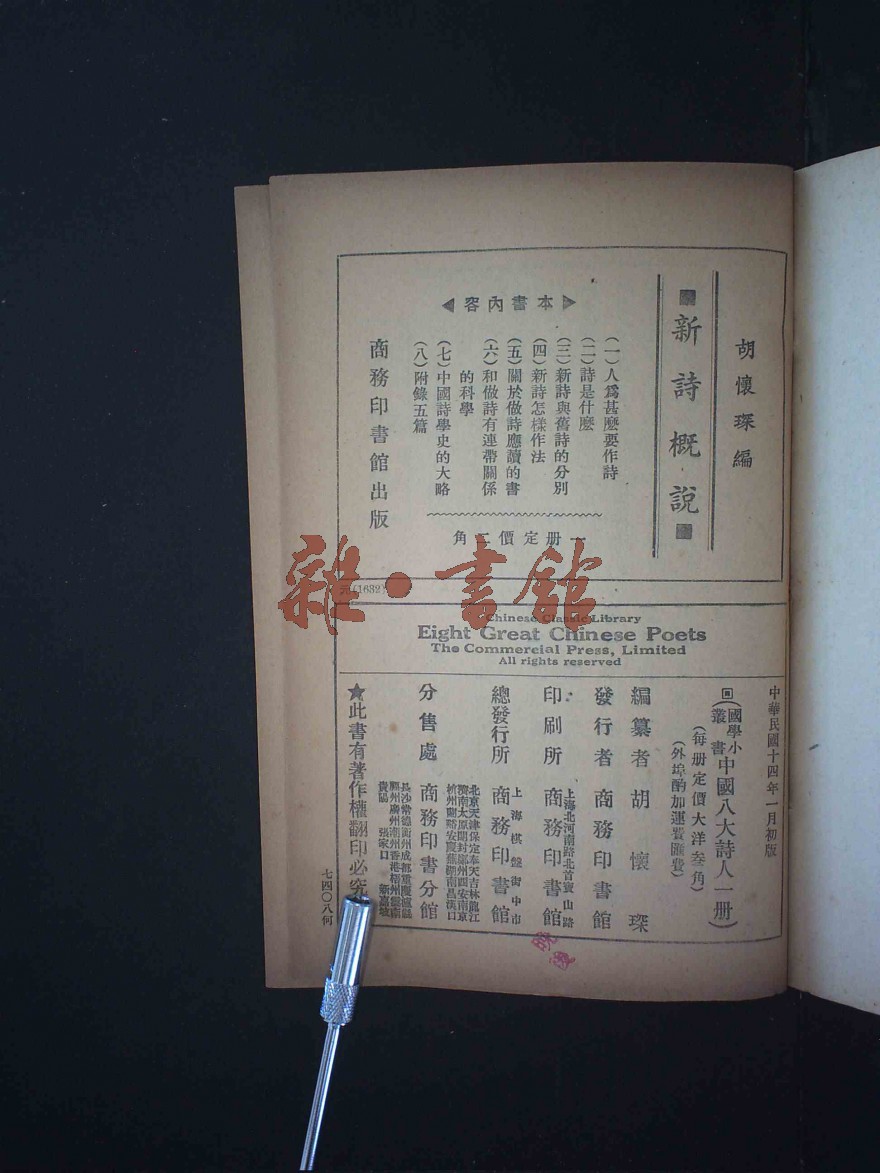 胡懷琛編
新詩概說
本書內容
(一)人爲甚麼要作詩
(二)詩是什麼
(三)新詩與舊詩的分別
(四)新詩怎樣作法
(五)關於做詩應讀的書
(六)和做詩有連帶關係
的科學
(七)中國詩學史的大略
(八)附錄五篇
一册定價二角
商務印書館出版
元(1632)
雜·書館
Chinese Classic Library
Eight Great Chinese Poets
The Commercial Press, Limited
All rights reserved
中華民國十四年一月初版
(國學小叢書中國八大詩人一册)
(每册定價大洋叁角)
(外埠酌加運費匯費)
編纂者 胡懷琛
發行者 商務印書館
印刷所 上海北河南路北首寶山路 商務印書館
總發行所 上海棋盤街中市 商務印書館
分售處 商務印書分館
北京天津保定奉天吉林龍江
濟南太原開封鄭州西安南京
杭州蘭谿安慶蕪湖南昌漢口
長沙常德衡州成都重慶瀘縣
福州廣州潮州香港梧州雲南
貴陽 張家口 新嘉坡
★此書有著作權翻印必究
七四〇八何